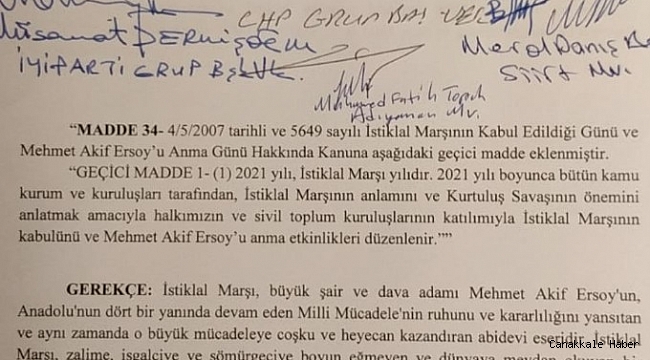 CHP GRUP BAŞ VEK
Müsavat DERVİŞOĞLU
İYİ PARTİ GRUP BŞK.VK.
Meral Danış B
Siirt Mv.
Mohamed Fatih Toprak
Adıyaman Mv.
“MADDE 34- 4/5/2007 tarihli ve 5649 sayılı İstiklal Marşının Kabul Edildiği Günü ve
Mehmet Akif Ersoy’u Anma Günü Hakkında Kanuna aşağıdaki geçici madde eklenmiştir.
“GEÇİCİ MADDE 1- (1) 2021 yılı, İstiklal Marşı yılıdır. 2021 yılı boyunca bütün kamu
kurum ve kuruluşları tarafından, İstiklal Marşının anlamını ve Kurtuluş Savaşının önemini
anlatmak amacıyla halkımızın ve sivil toplum kuruluşlarının katılımıyla İstiklal Marşının
kabulünü ve Mehmet Akif Ersoy’u anma etkinlikleri düzenlenir.””
GEREKÇE: İstiklal Marşı, büyük şair ve dava adamı Mehmet Akif Ersoy'un,
Anadolu'nun dört bir yanında devam eden Milli Mücadele'nin ruhunu ve kararlılığını yansıtan
ve aynı zamanda o büyük mücadeleye coşku ve heyecan kazandıran abidevi eseridir. İstiklal
Marşı, zalime, işgalciye ve sömürgeciye boyun eğmeyen ve dünyaya meydan okuyan bir
Çanakkale Haber